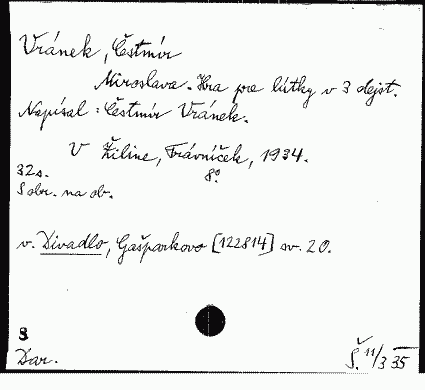 Vránek, Čestmír
Miroslava. Hra pre lútky v 3 dejst.
Napísal: Čestmír Vránek.
V Žiline, Trávníček, 1934.
32s. 8°
S obr. na ob.
v. Divadlo, Gašparkovo [122814] sv. 20.
8
Dar. Š. 11/3 35